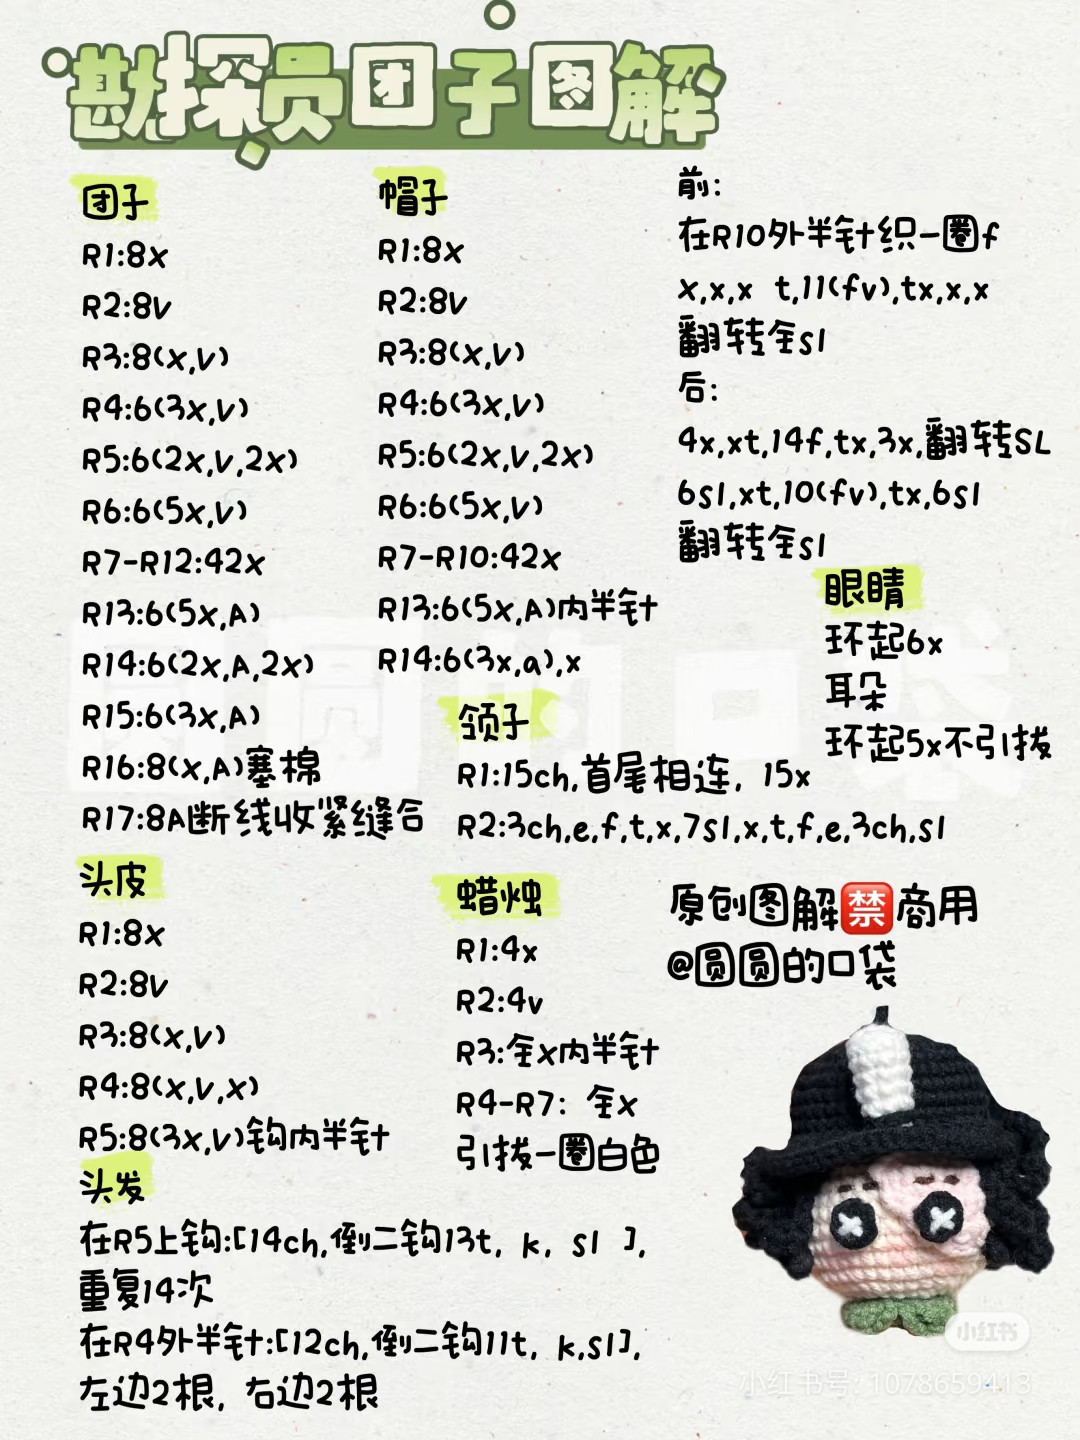 勘探员团子图解
团子
R1:8x
R2:8v
R3:8(x,v)
R4:6(3x,v)
R5:6(2x,v,2x)
R6:6(5x,v)
R7-R12:42x
R13:6(5x,A)
R14:6(2x,A,2x)
R15:6(3x,A)
R16:8(x,A)塞棉
R17:8A断线收紧缝合
帽子
R1:8x
R2:8v
R3:8(x,v)
R4:6(3x,v)
R5:6(2x,v,2x)
R6:6(5x,v)
R7-R10:42x
R13:6(5x,A)内半针
R14:6(3x,a),x
前:
在R10外半针织一圈f
x,x,x t,11(fv),tx,x,x
翻转全sl
后:
4x,xt,14f,tx,3x,翻转SL
6sl,xt,10(fv),tx,6sl
翻转全sl
眼睛
环起6x
耳朵
环起5x不引拔
领子
R1:15ch,首尾相连, 15x
R2:3ch,e,f,t,x,7sl,x,t,f,e,3ch,sl
头皮
R1:8x
R2:8v
R3:8(x,v)
R4:8(x,v,x)
R5:8(3x,v)钩内半针
蜡烛
R1:4x
R2:4v
R3:全x内半针
R4-R7: 全x
引拔一圈白色
原创图解禁商用
@圆圆的口袋
头发
在R5上钩:[14ch,倒二钩13t, k, sl ],
重复14次
在R4外半针:[12ch,倒二钩11t, k,sl],
左边2根, 右边2根
圆圆的口袋
小红书
小红书号: 1078659413